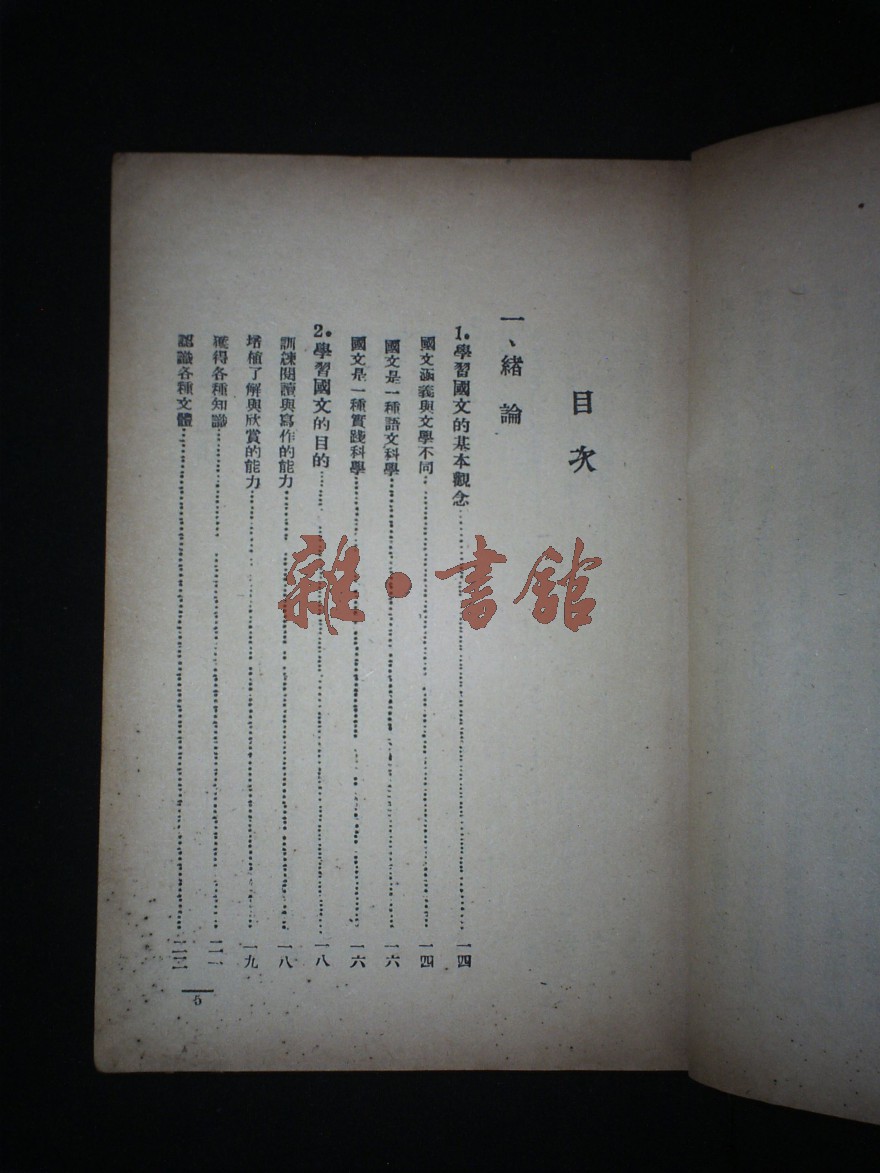 目次
一、緒論
1.學習國文的基本觀念 一四
國文涵義與文學不同 一四
國文是一種語文科學 一六
國文是一種實踐科學 一六
2.學習國文的目的 一八
訓練閱讀與寫作的能力 一八
培植了解與欣賞的能力 一九
獲得各種知識 二一
認識各種文體
5
雜·書館